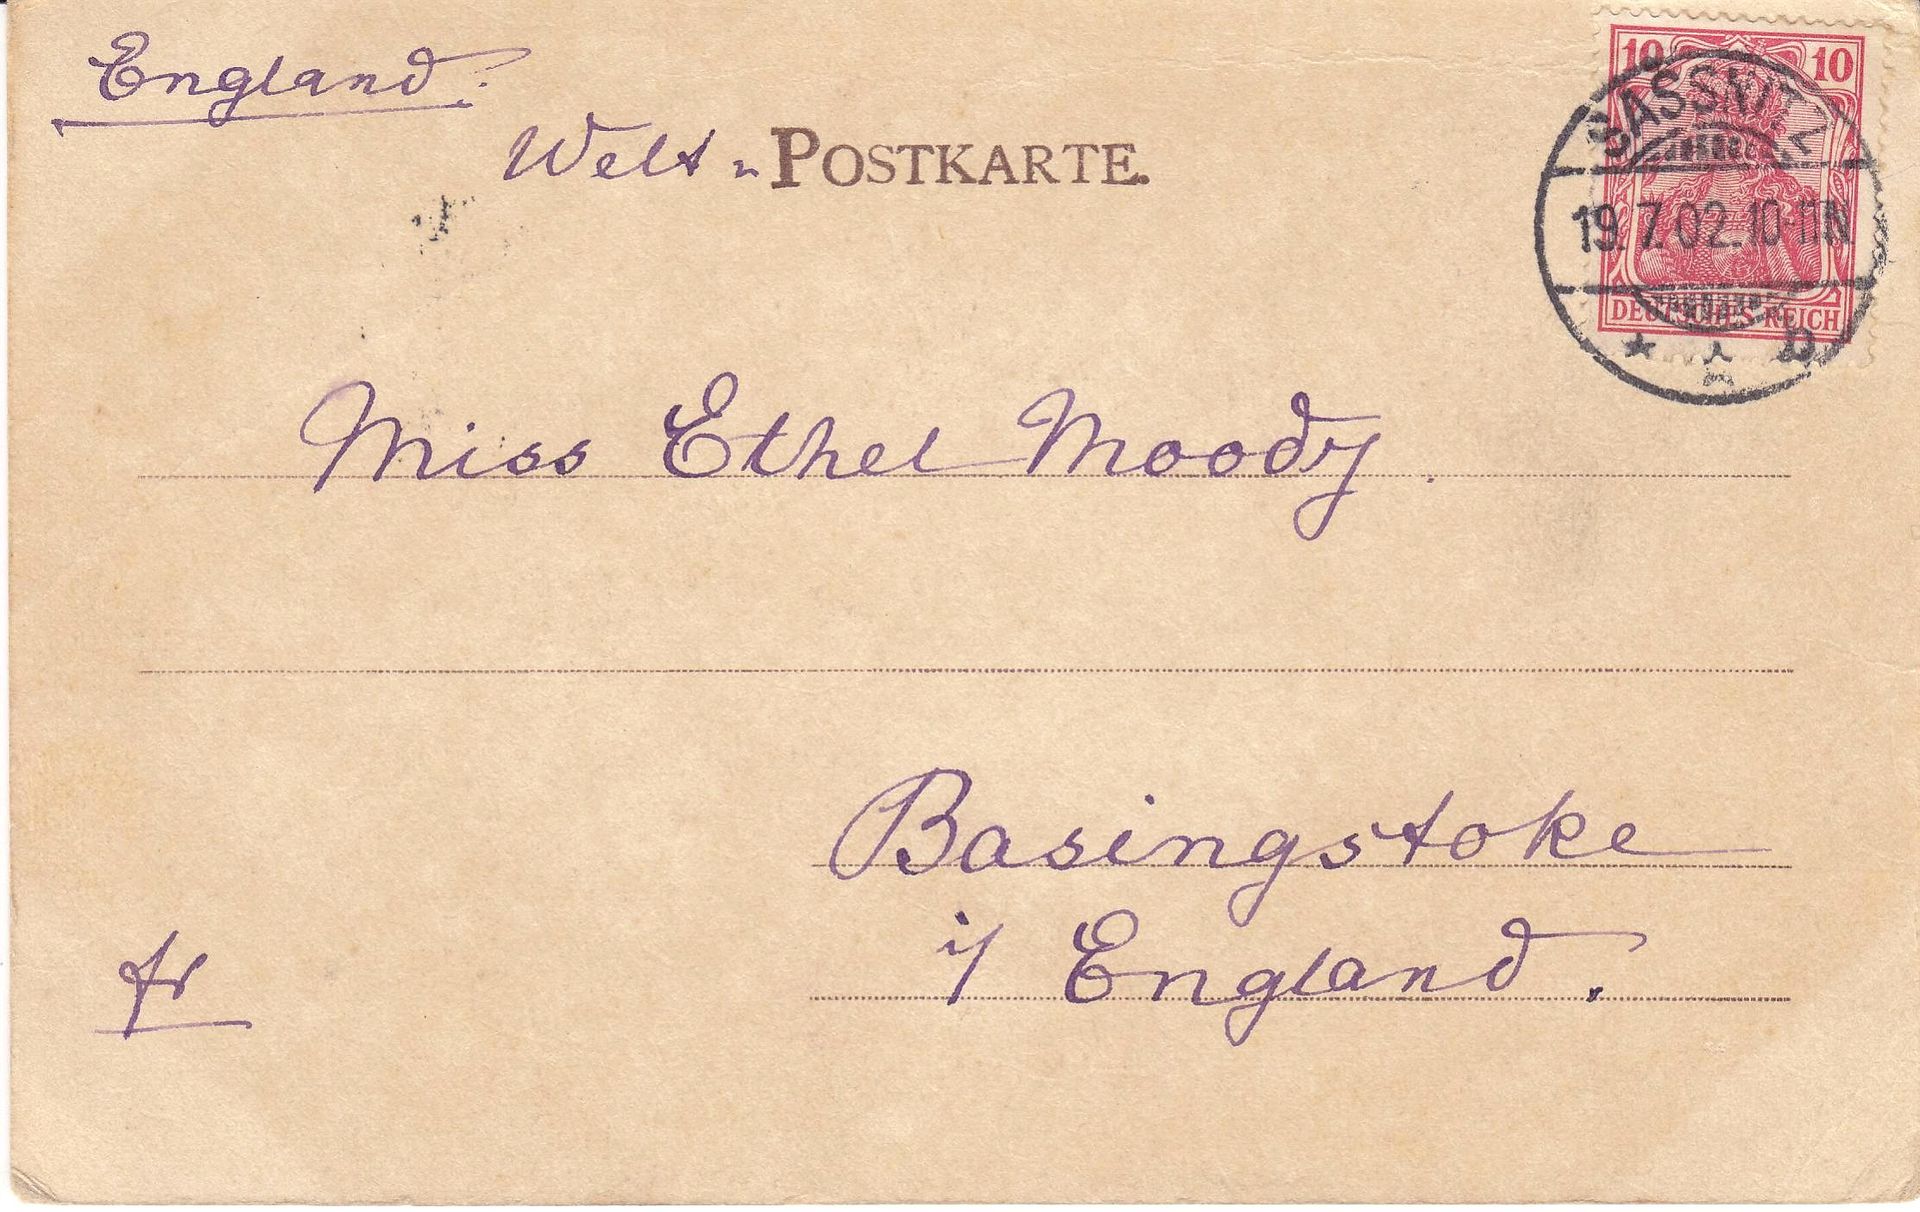 England.
Welt - POSTKARTE.
10 10
SASSNITZ
19.7.02.10-11N
DEUTSCHES REICH
* b
Miss Ethel Moody.
Basingstoke
i/ England.
fr